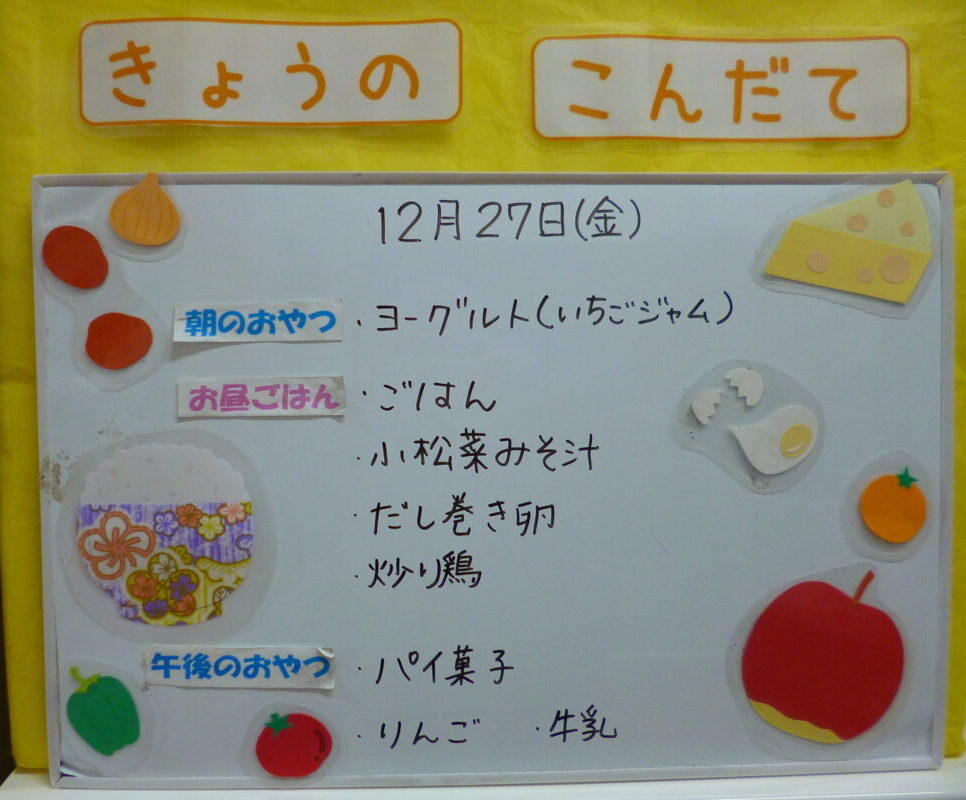 きょうの こんだて
12月27日(金)
朝のおやつ ・ヨーグルト(いちごジャム)
お昼ごはん ・ごはん
・小松菜みそ汁
・だし巻き卵
・炒り鶏
午後のおやつ ・パイ菓子
・りんご ・牛乳